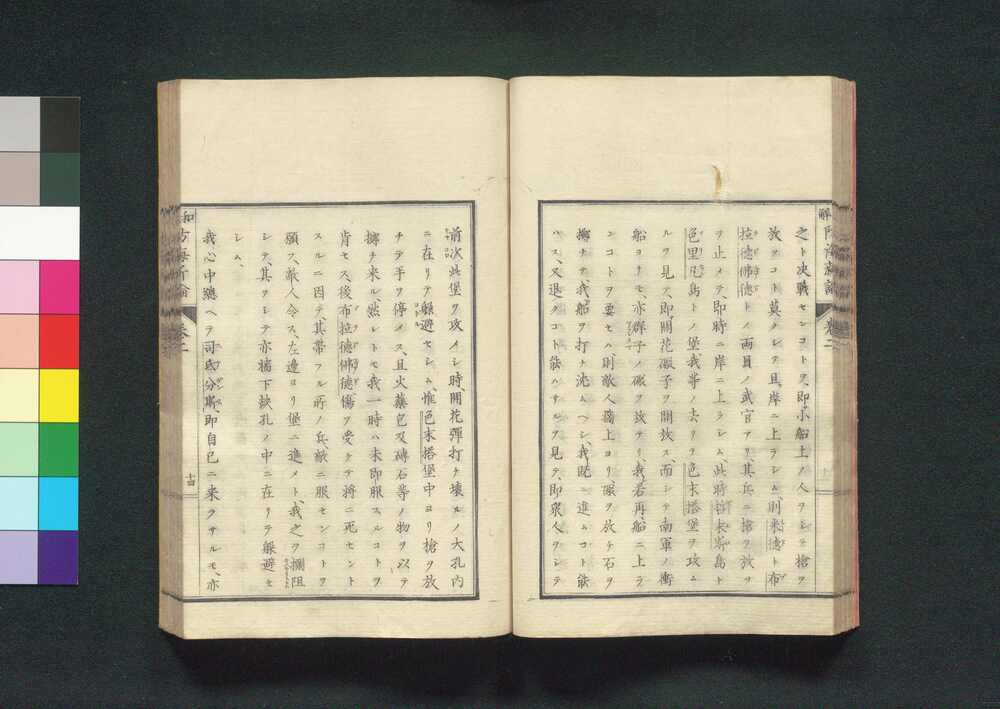 之ト决戰センコトヲ、即小船上ノ人ヲシテ槍ヲ
放ツコト莫クシテ且岸ニ上ラシム、則米德ト布
拉德佛德トノ両員ノ武官アリ、其兵ニ槍ヲ放ヲ
ヲ止メテ、即時ニ岸ニ上ラシム、此時
島トノ堡我等ノ去リテ色末塔堡ヲ攻ム
ルヲ見テ、即開花礟子ヲ開放ス、而シテ南軍ノ衝
船ヨリモ、亦群子ノ礟ヲ放テリ、我若再船ニ上ラ
ンコトヲ要セハ則敵人牆上ヨリ、礟ヲ放チ石ヲ
擲チテ、我船ヲ打ト沈ムヘシ、我既ニ進ムコト能
ハス、又退クコト能ハサルヲ見テ、即衆人ヲシテ
前次此堡ヲ攻メシ時、開花彈打チ壊ルノ大孔内
ニ在リテ躱避セシム、惟色末塔堡中ヨリ槍ヲ放
チテ手ヲ停メス、且火藥包及磚石等ノ物ヲ以テ
擲チ来ル、然レトモ我一時ハ未即服スルコトヲ
肯セス後布拉德佛德傷ヲ受ケテ将ニ死セント
スルニ因テ、其帯フル所ノ兵、敵ニ服センコトヲ
願フ、敵人令ス、左邊ヨリ堡ニ進メト、我之ヲ攔阻
シテ、其ヲシテ亦墻下缺孔ノ中ニ在リテ躱避セ
シム、
我心中總ヘテ司氏分斯、即自己ニ来クサルモ、亦
卷二
十四